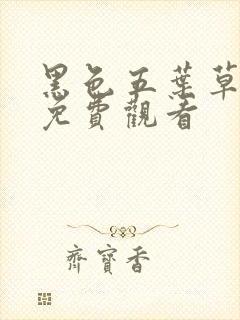 黑色五葉草
免費觀看
齊寶香